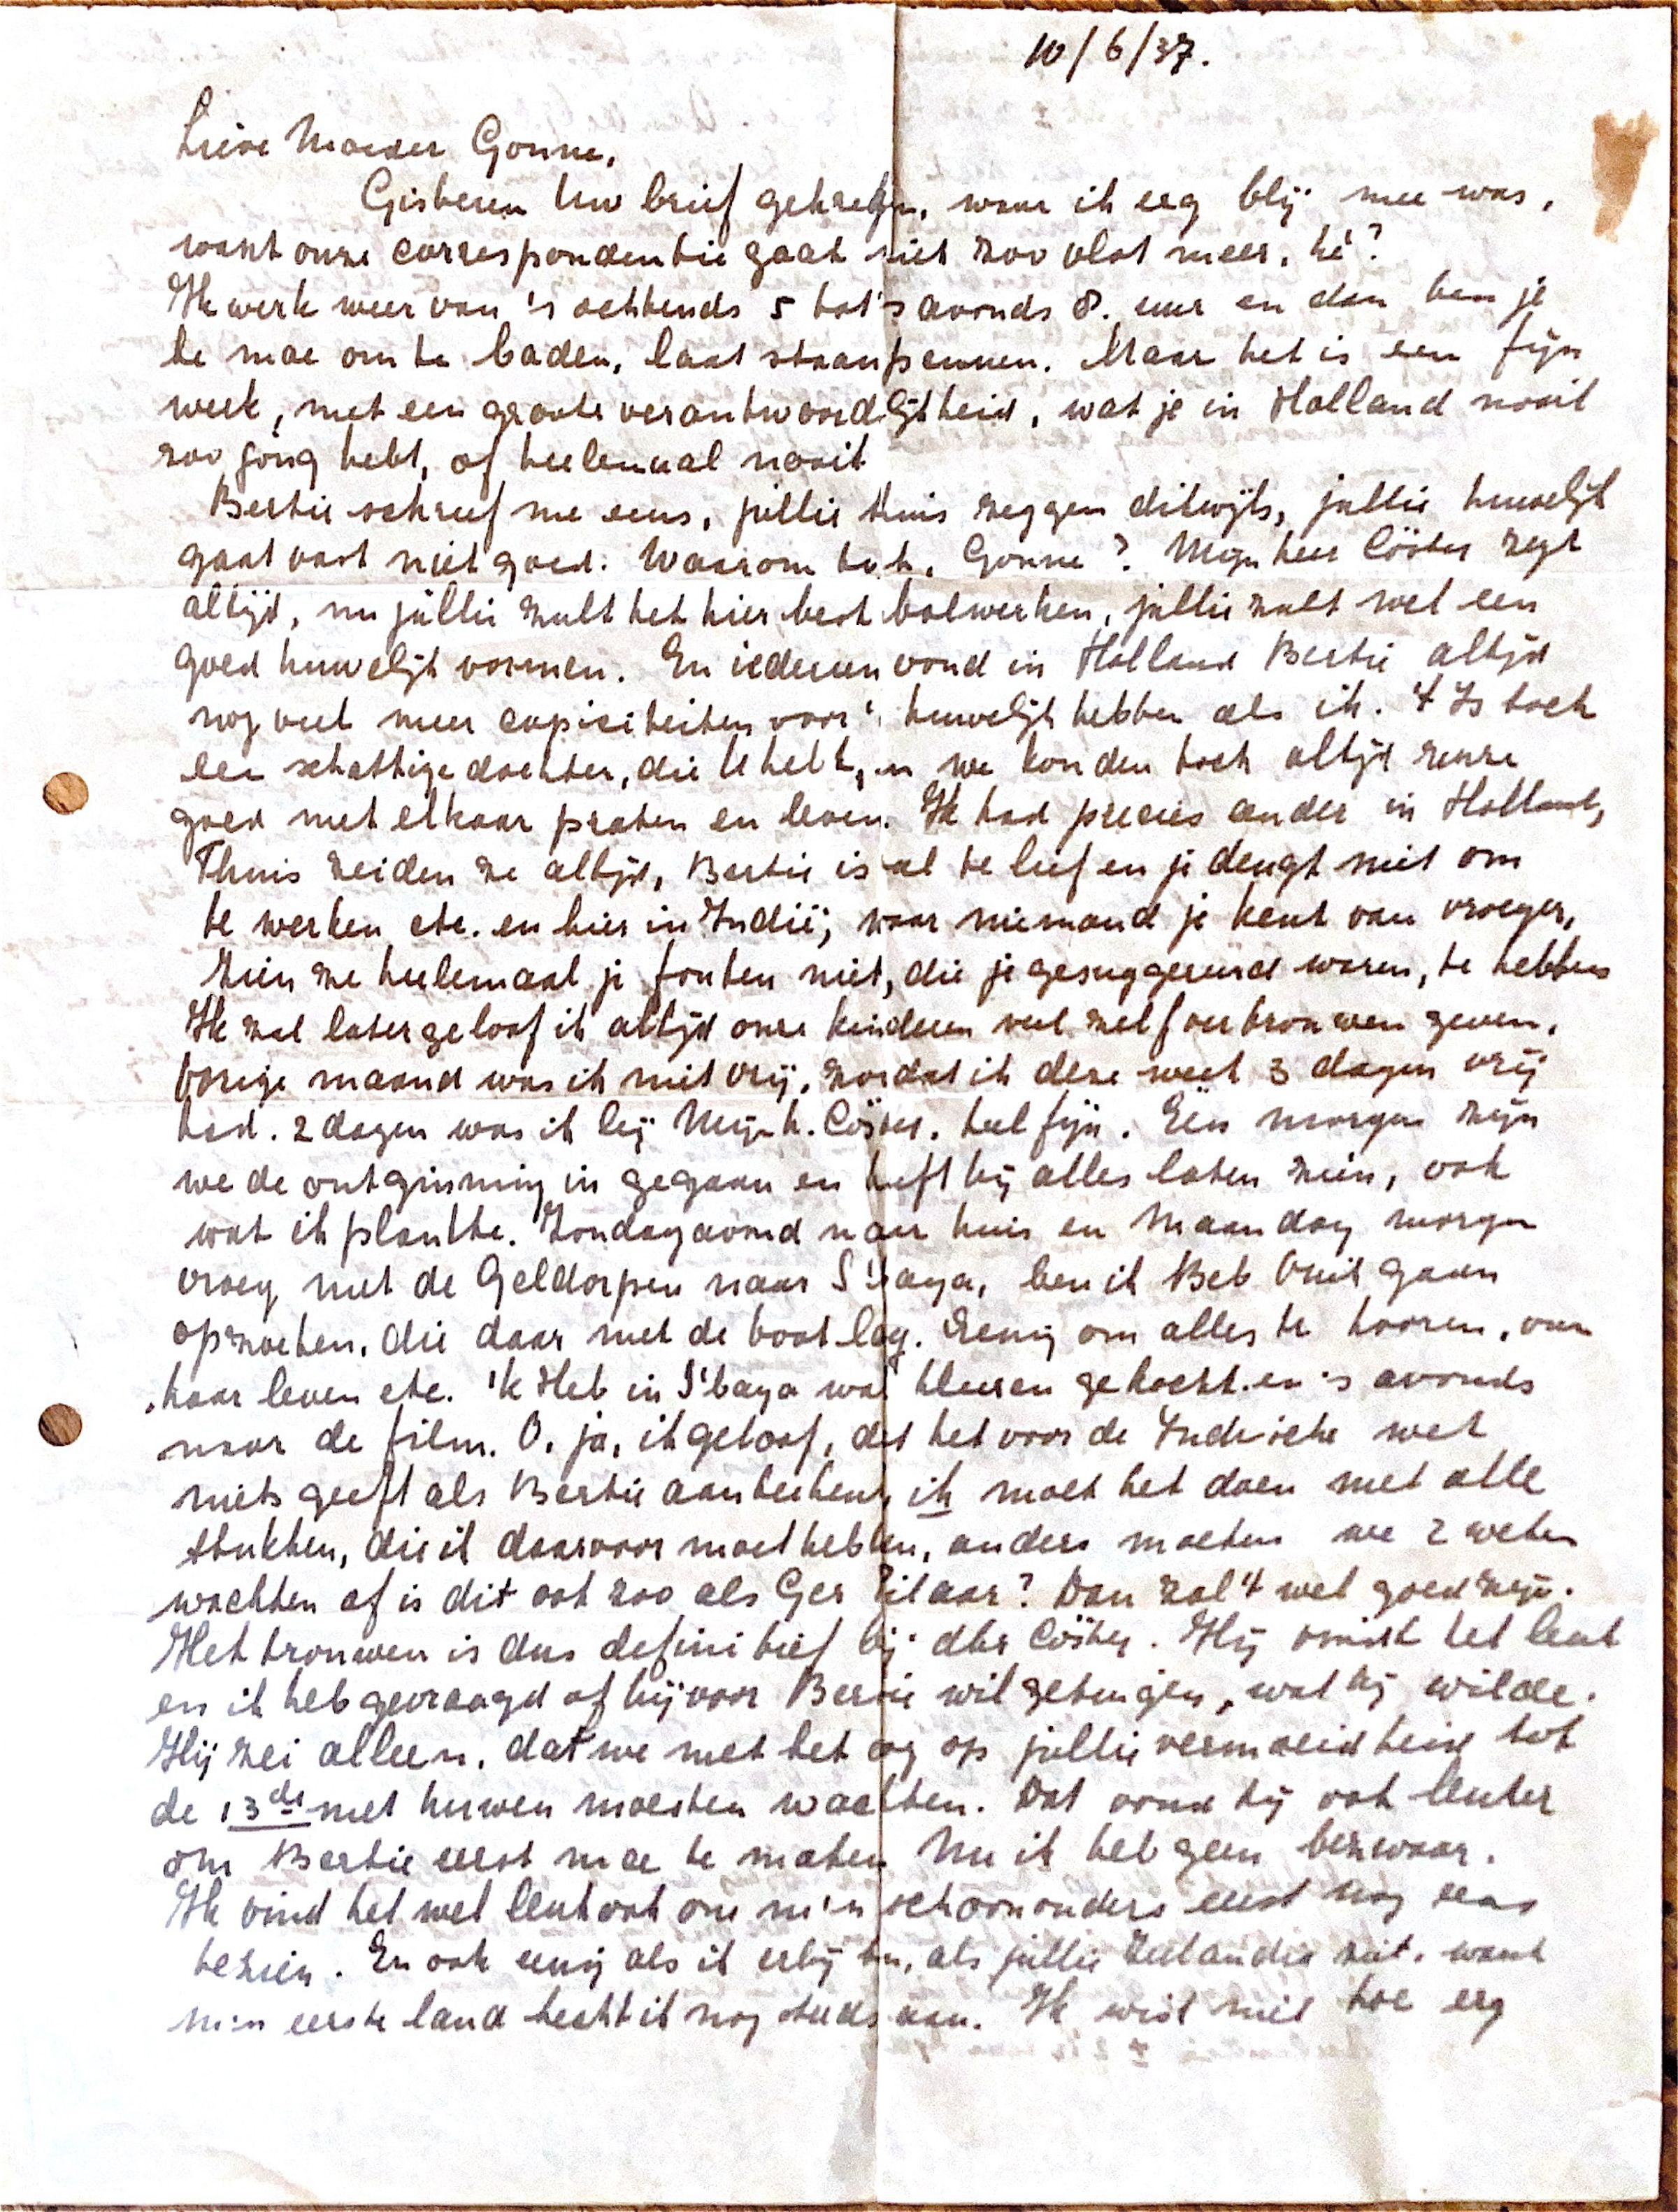 10/6/37.
Lieve Moeder Gonne,
Gisteren Uw brief gekregen, waar ik erg blij mee was,
want onze correspondentie gaat niet zoo vlot meer, hè?
Ik werk weer van 's ochtends 5 tot 's avonds 8. uur en dan ben je
te moe om te baden, laat staan pennen. Maar het is een fijn
werk, met een groote verantwoordelijkheid, wat je in Holland nooit
zoo jong hebt, of heelemaal nooit
Bertie schreef me eens, jullie thuis zeggen dikwijls, jullie huwelijk
gaat vast niet goed. Waarom toch, Gonne? Mijnheer Cöster zegt
altijd, nu jullie zult het hier best bolwerken, jullie zult wel een
goed huwelijk vormen. En iedereen vond in Holland Bertie altijd
nog veel meer capiciteiten voor 't huwelijk hebben als ik. 't Is toch
een schattige dochter, die U hebt, en we konden toch altijd zeer
goed met elkaar praten en leven. Ik had precies ander in Holland,
Thuis zeiden ze altijd, Bertie is al te lief en je deugt niet om
te werken etc. en hier in Indië, waar niemand je kent van vroeger,
zien ze heelemaal je fouten niet, die je gesuggereerd waren, te hebben
Ik zal later geloof ik altijd onze kinderen veel zelfvertrouwen geven.
Vorige maand was ik niet vrij, zoodat ik deze week 3 dagen vrij
had. 2 dagen was ik bij Mijnh. Cöster, heel fijn. Eén morgen zijn
we de ontginning in gegaan en heeft hij alles laten zien, ook
wat ik plantte. Zondagavond naar huis en Maandag morgen
vroeg met de Geldorpen naar S'baya, ben ik Beb Vuit gaan
opzoeken, die daar met de boot lag. Eenig om alles te hooren, van
haar leven etc. 'k Heb in S'baya wat kleeren gekocht en 's avonds
naar de film. O, ja, ik geloof, dat het voor de Indische wet
niets geeft als Bertie aanteekent, ik moet het doen met alle
stukken, die ik daarvoor moet hebben, anders moeten we 2 weken
wachten of is dit ook zoo als Ger Zilaar? Dan zal 't wel goed zijn.
Het trouwen is dus definitief bij dhr Cöster. Hij vindt het leuk
en ik heb gevraagd of hij voor Bertie wil getuigen, wat hij wilde.
Hij zei alleen, dat we met het oog op jullie vermoeidheid tot
de 13de met huwen moesten wachten. Dat vond hij ook leuker
om Bertie eerst mee te maken Nu ik heb geen bezwaar.
Ik vind het wel leuk ook om m'n schoonouders eerst nog eens
te zien. En ook eenig als ik erbij ben, als jullie Zeelandia ziet, want
m'n eerste land hecht ik nog steeds aan. Ik wist niet hoe erg